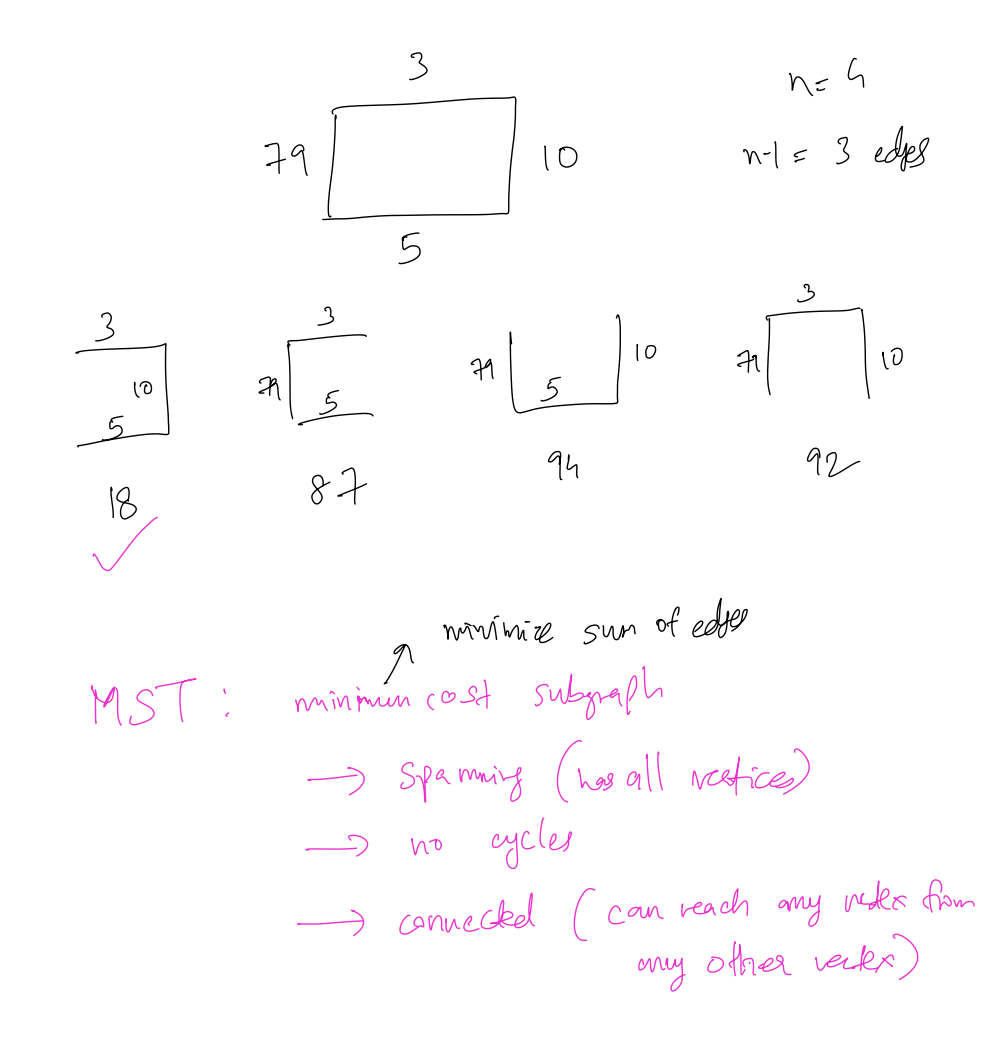 3
n= 4
79
10
n-1 = 3 edges
5
3
10
5
3
79
5
79
5
10
3
79
10
18
87
94
92
minimize sum of edges
MST : minimum cost subgraph
→ spanning (has all vertices)
→ no cycles
→ connected (can reach any vertex from
any other vertex)